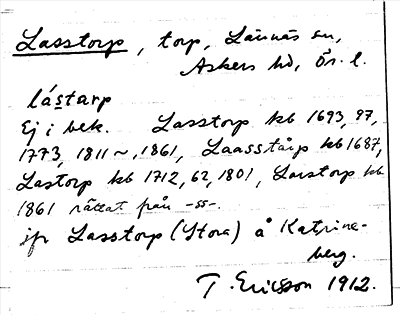 Lasstorp, torp, Lännäs sn,
Askers hd, Ör. l.
lástarp
Ej i bek. Lasstorp kb 1693, 97,
1773, 1811~, 1861, Laasstårp kb 1687,
Lastorp kb 1712, 62, 1801, Larstorp kb
1861 rättat från -ss-.
jfr Lasstorp (Stora) å Katrine-
berg.
T. Ericsson 1912.